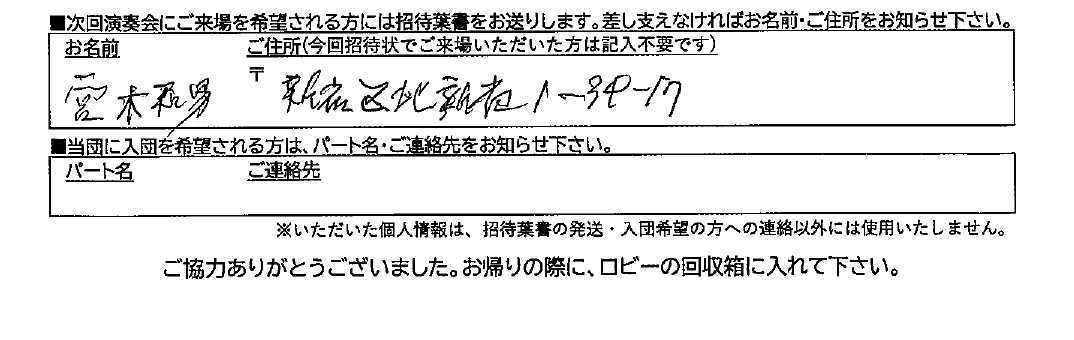 ■次回演奏会にご来場を希望される方には招待葉書をお送りします。差し支えなければお名前・ご住所をお知らせ下さい。
お名前 ご住所(今回招待状でご来場いただいた方は記入不要です)
〒
宮本和男 新宿区北新宿1-39-17
■当団に入団を希望される方は、パート名・ご連絡先をお知らせ下さい。
パート名 ご連絡先
※いただいた個人情報は、招待葉書の発送・入団希望の方への連絡以外には使用いたしません。
ご協力ありがとうございました。お帰りの際に、ロビーの回収箱に入れて下さい。